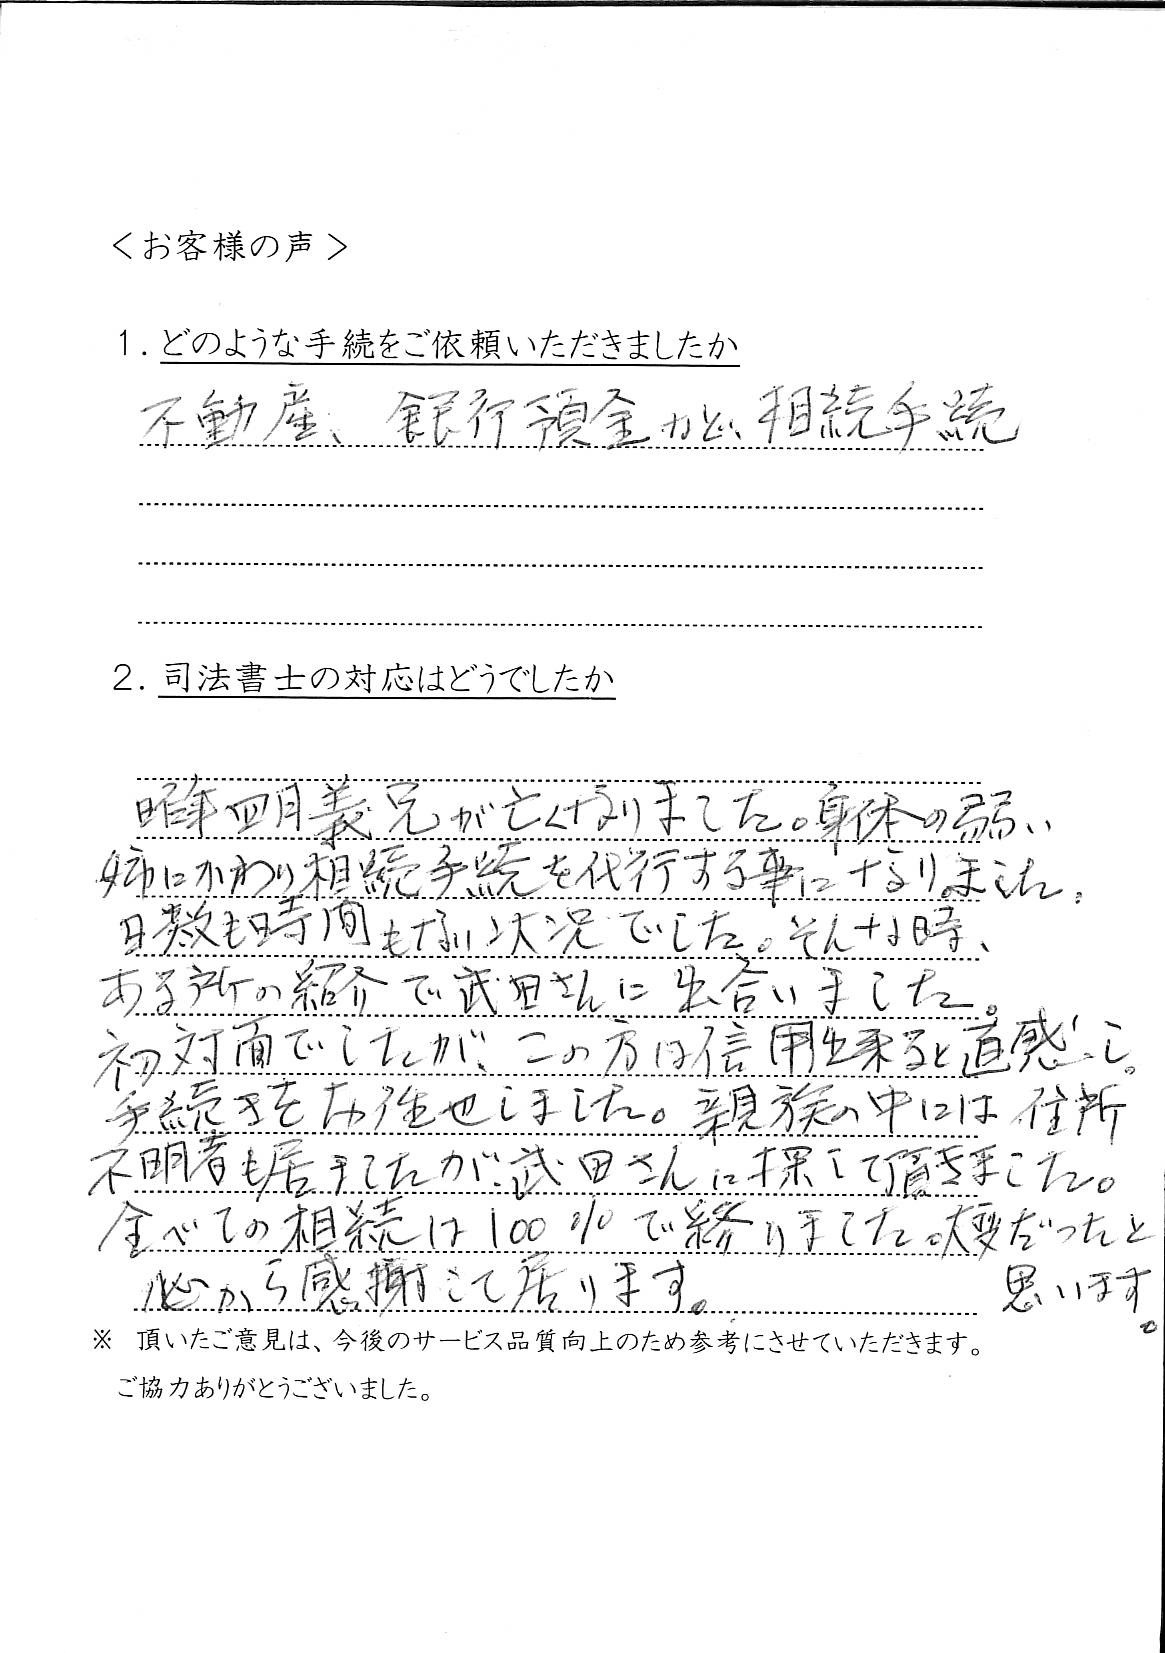 ＜お客様の声＞
1. どのような手続をご依頼いただきましたか
不動産、銀行預金など、相続手続
2. 司法書士の対応はどうでしたか
昨年四月義兄が亡くなりました。身体の弱い
姉にかわり相続手続を代行する事になりました。
日数も時間もない状況でした。そんな時、
ある所の紹介で武田さんに出合いました。
初対面でしたが、この方は信用出来ると直感し。
手続きをお任せしました。親族の中には住所
不明者も居ましたが、武田さんに探して頂きました。
全べての相続は100%で終りました。大変だったと
思います。
心から感謝して居ります。
※ 頂いたご意見は、今後のサービス品質向上のため参考にさせていただきます。
ご協力ありがとうございました。